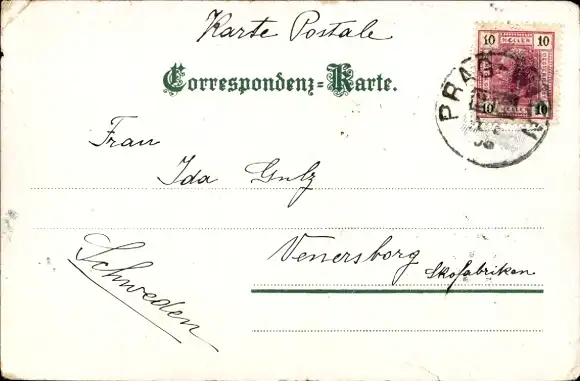 Karte Postale
10 HELLER 10
10 10
PRAG
Correspondenz-Karte.
Frau
Ida Gulz
Venersborg
Skofabriken
Schweden